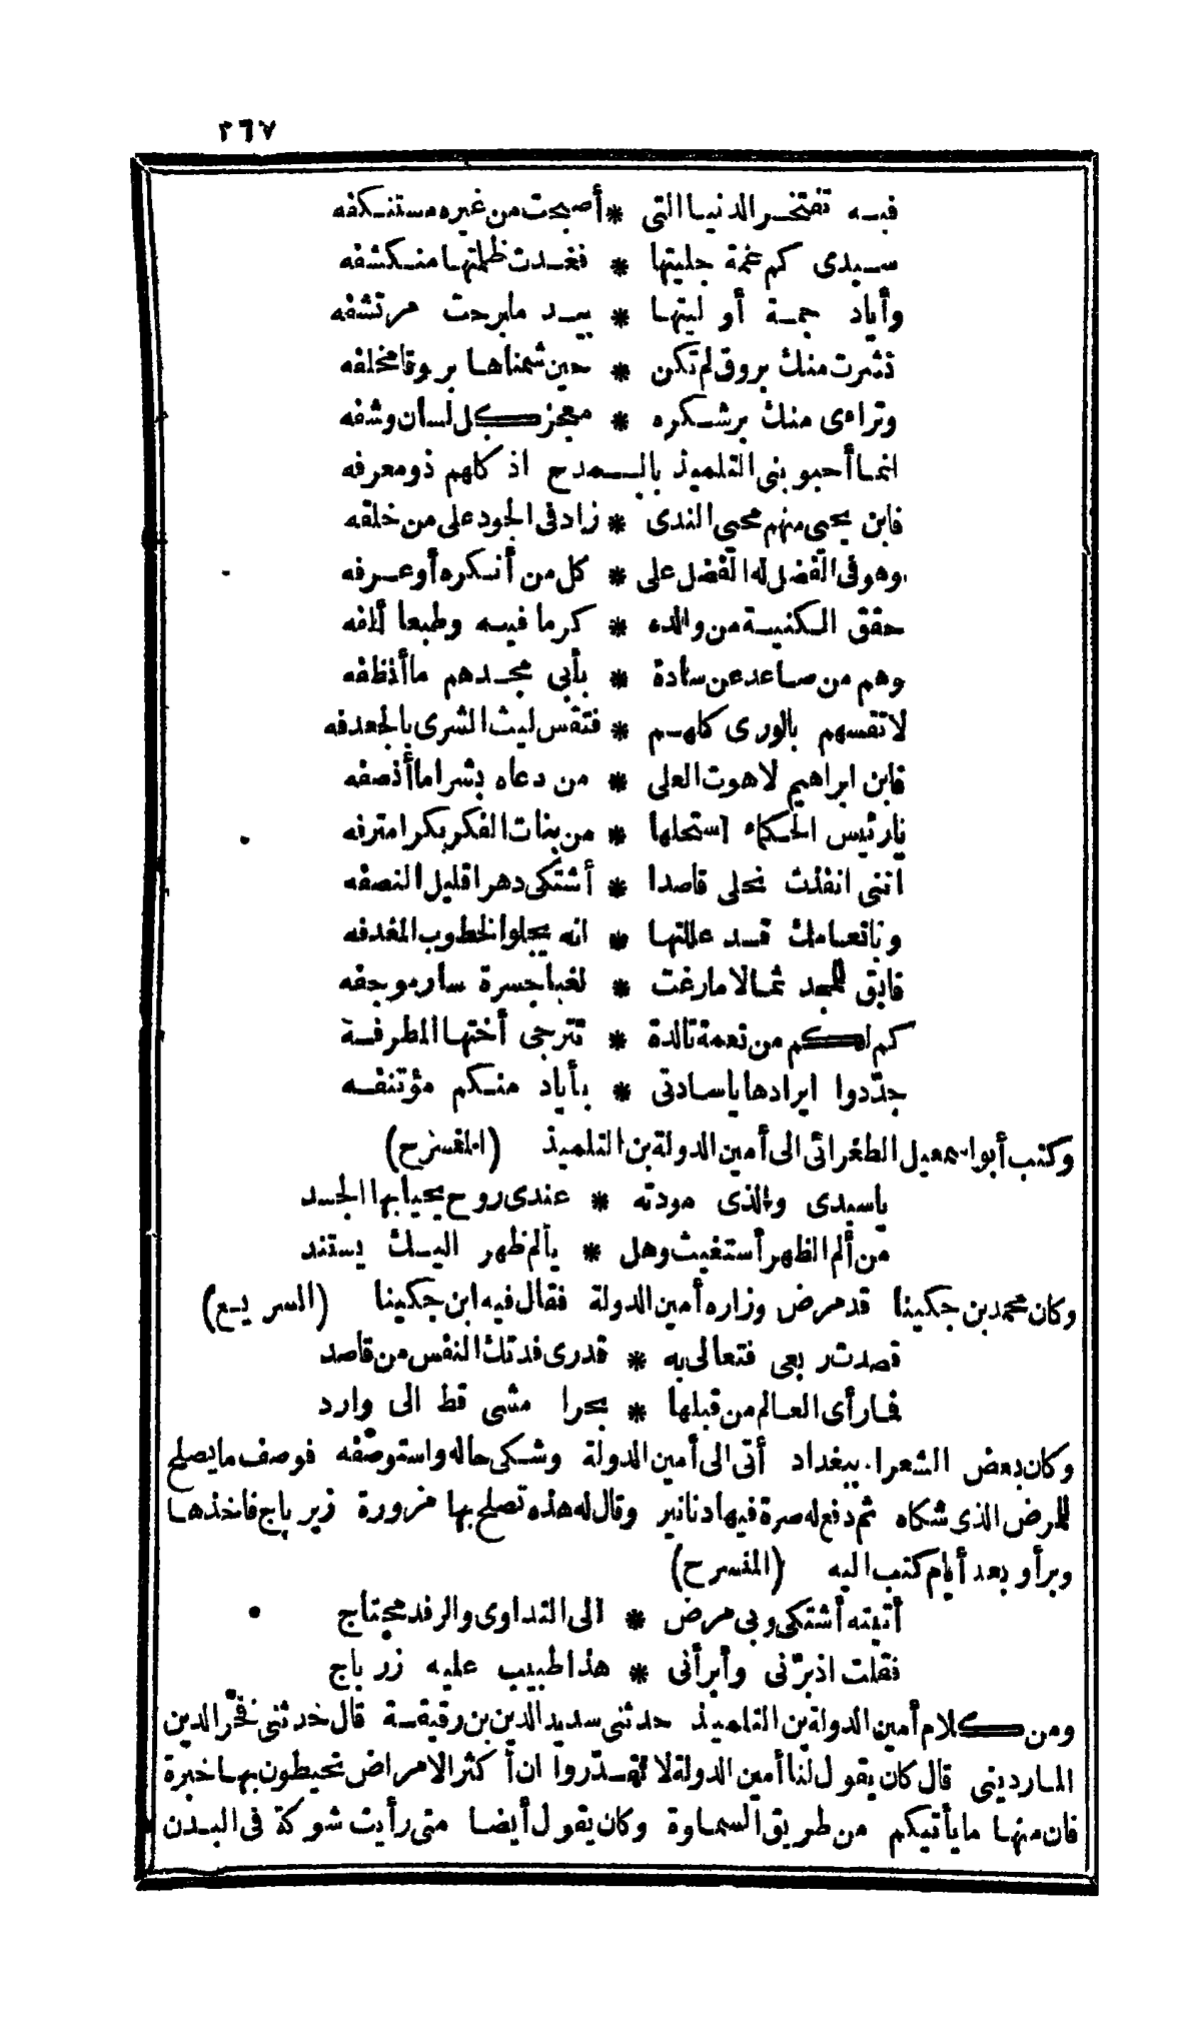 ٢٦٧
فيه تفتخر الدنيا التي * أصبحت من غيره مستنكفه
سيدى كم غمة جليتها * فغدت ظلمتها منكشفه
وأياد جمة أوليتها * بيد ما برحت مرتشفه
نشرت منك بروق لم تكن * حين شمناها بروقا مخلفه
وتراءى منك بر شكره * معجز كل لسان وشفه
انما أحبو بنى التلميذ بالمدح اذ كلهم ذو معرفه
فابن يحيى منهم محيى الندى * زاد فى الجود على من خلفه
وهو فى الفضل له الفضل على * كل من أنكره أو عرفه
حقق الكنية من والده * كرما فيه وطبعا ألفه
وهم من صاعد عن سادة * بأبى مجدهم ما أنظفه
لا تقسهم بالورى كلهم * فتقس ليث الشرى بالجعدفه
فابن ابراهيم لاهوت العلى * من دعاه بشرا ما أنصفه
يا رئيس الحكماء استجلها * من بنات الفكر بكرا مترفه
اننى انفذت نجلى قاصدا * أشتكى دهرا قليل النصفه
وبانعامك قد عللتها * انه يجلو الخطوب المغدفه
فابق للمجد ثمالا ما رغت * لغبا جسرة سار موجفه
كم لكم من نعمة تالدة * تترجى أختها المطرفة
جدّدوا ايرادها يا سادتى * بأياد منكم مؤتنفه
وكتب أبو اسمعيل الطغرائى الى أمين الدولة بن التلميذ (المنسرح)
يا سيدى والذى مودته * عندى روح يحيا بها الجسد
من ألم الظهر أستغيث وهل * يألم ظهر اليك يستند
وكان محمد بن جكينا قد مرض وزاره أمين الدولة فقال فيه ابن جكينا (السريع)
قصدت ربعى فتعالى به * قدرى فدتك النفس من قاصد
فما رأى العالم من قبلها * بحرا مشى قط الى وارد
وكان بعض الشعراء ببغداد أتى الى أمين الدولة وشكى حاله واستوصفه فوصف ما يصلح
للمرض الذى شكاه ثم دفع له صرة فيها دنانير وقال له هذه تصلح بها مزورة زير باج فاخذها
وبرأ وبعد أيام كتب اليه (المنسرح)
أتيته أشتكى وبى مرض * الى التداوى والرفد محتاج
فقلت اذ برّنى وأبرأنى * هذا طبيب عليه زر باج
ومن كلام أمين الدولة بن التلميذ حدثنى سديد الدين بن رقيقة قال حدثنى فخر الدين
الماردينى قال كان يقول لنا أمين الدولة لا تقدّروا ان أكثر الامراض تحيطون بها خبرة
فان منها ما يأتيكم من طريق السماوة وكان يقول أيضا متى رأيت شوكة فى البدن